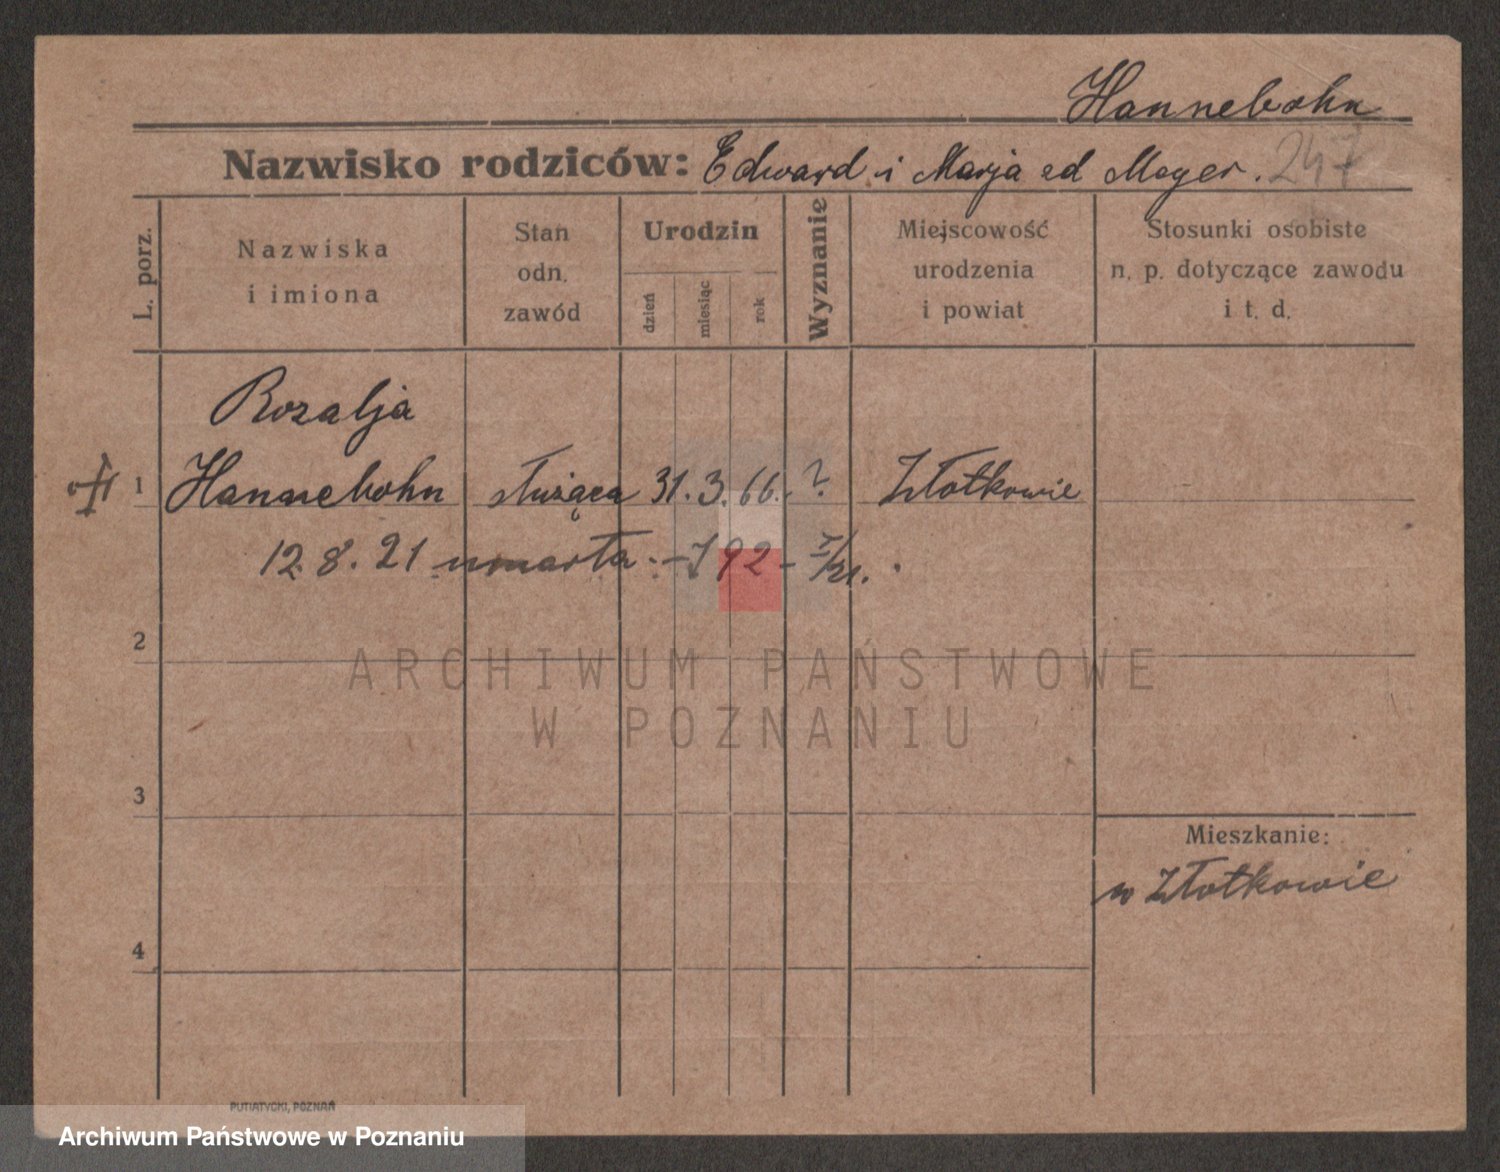 Hannebohn
Nazwisko rodziców: Edward i Marja zd Meyer. 247
L. porz.
Nazwiska
i imiona
Stan
odn.
zawód
Urodzin
dzień
miesiąc
rok
Wyznanie
Miejscowość
urodzenia
i powiat
Stosunki osobiste
n. p. dotyczące zawodu
i t. d.
Rozalja
1 Hannebohn służąca 31. 3. 66. ? Złotkowie
12. 8. 21 umarła
2
ARCHIWUM PAŃSTWOWE
W POZNANIU
3
Mieszkanie:
w Złotkowie
4
PUTIATYCKI, POZNAŃ
Archiwum Państwowe w Poznaniu